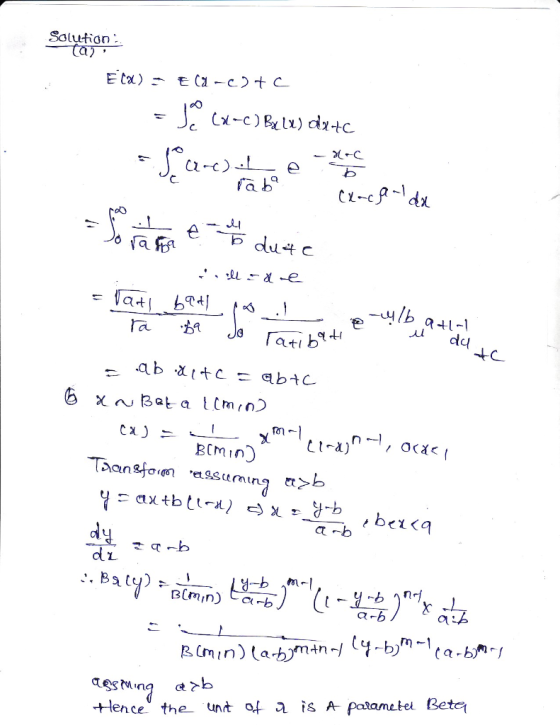 Solution:
(a).
E(x) = E(x-c)+c
= ∫_c^∞ (x-c) Bx(x) dx+c
= ∫_c^∞ (x-c) 1/(Γa b^a) e^{-(x-c)/b} (x-c)^{a-1} dx
= ∫_0^∞ 1/(Γa b^a) e^{-u/b} du+c
∴ u = x-c
= Γa+1/Γa b^{a+1}/b^a ∫_0^∞ 1/(Γa+1 b^{a+1}) e^{-u/b} u^{a+1-1} du +c
= ab x1+c = ab+c
(b) x ~ Beta 1(m,n)
(x) = 1/B(m,n) x^{m-1} (1-x)^{n-1}, 0<x<1
Transform assuming a>b
y = ax+b(1-x) ⇒ x = (y-b)/(a-b), b<x<a
dy/dx = a-b
∴ Bx(y) = 1/B(m,n) ((y-b)/(a-b))^{m-1} (1-(y-b)/(a-b))^{n-1} x 1/(a-b)
= 1/(B(m,n)(a-b)^{m+n-1}) (y-b)^{m-1} (a-b)^{m-1}
assming a>b
Hence the unit of x is A parameter Beta